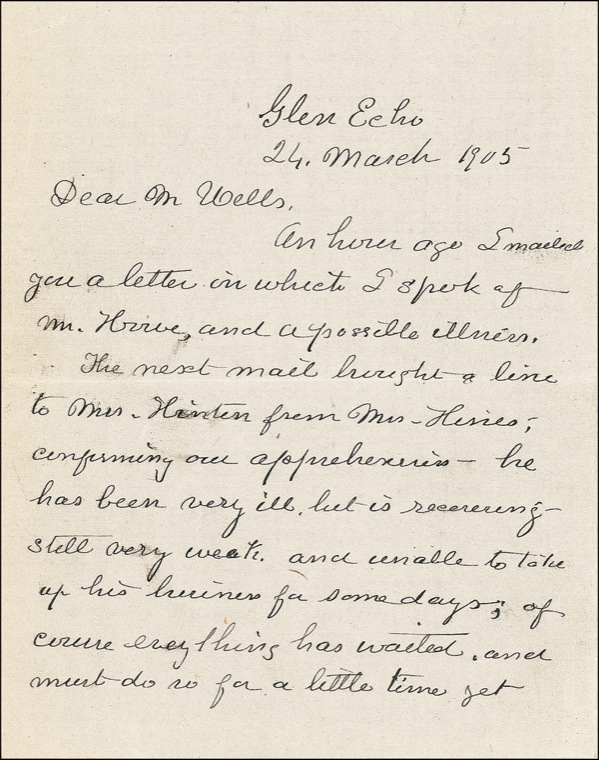 Glen Echo
24. March 1905
Dear M Wells.
An hour ago I mailed
you a letter in which I spok of
Mr. and a possible illness.
The next mail brought a line
to Mrs. Hinton from Mrs. Hines;
confirming our apprehension – he
has been very ill, but is recovering–
still very weak. and unable to take
up his business for some days; of
course everything has waited, and
must do so for a little time yet